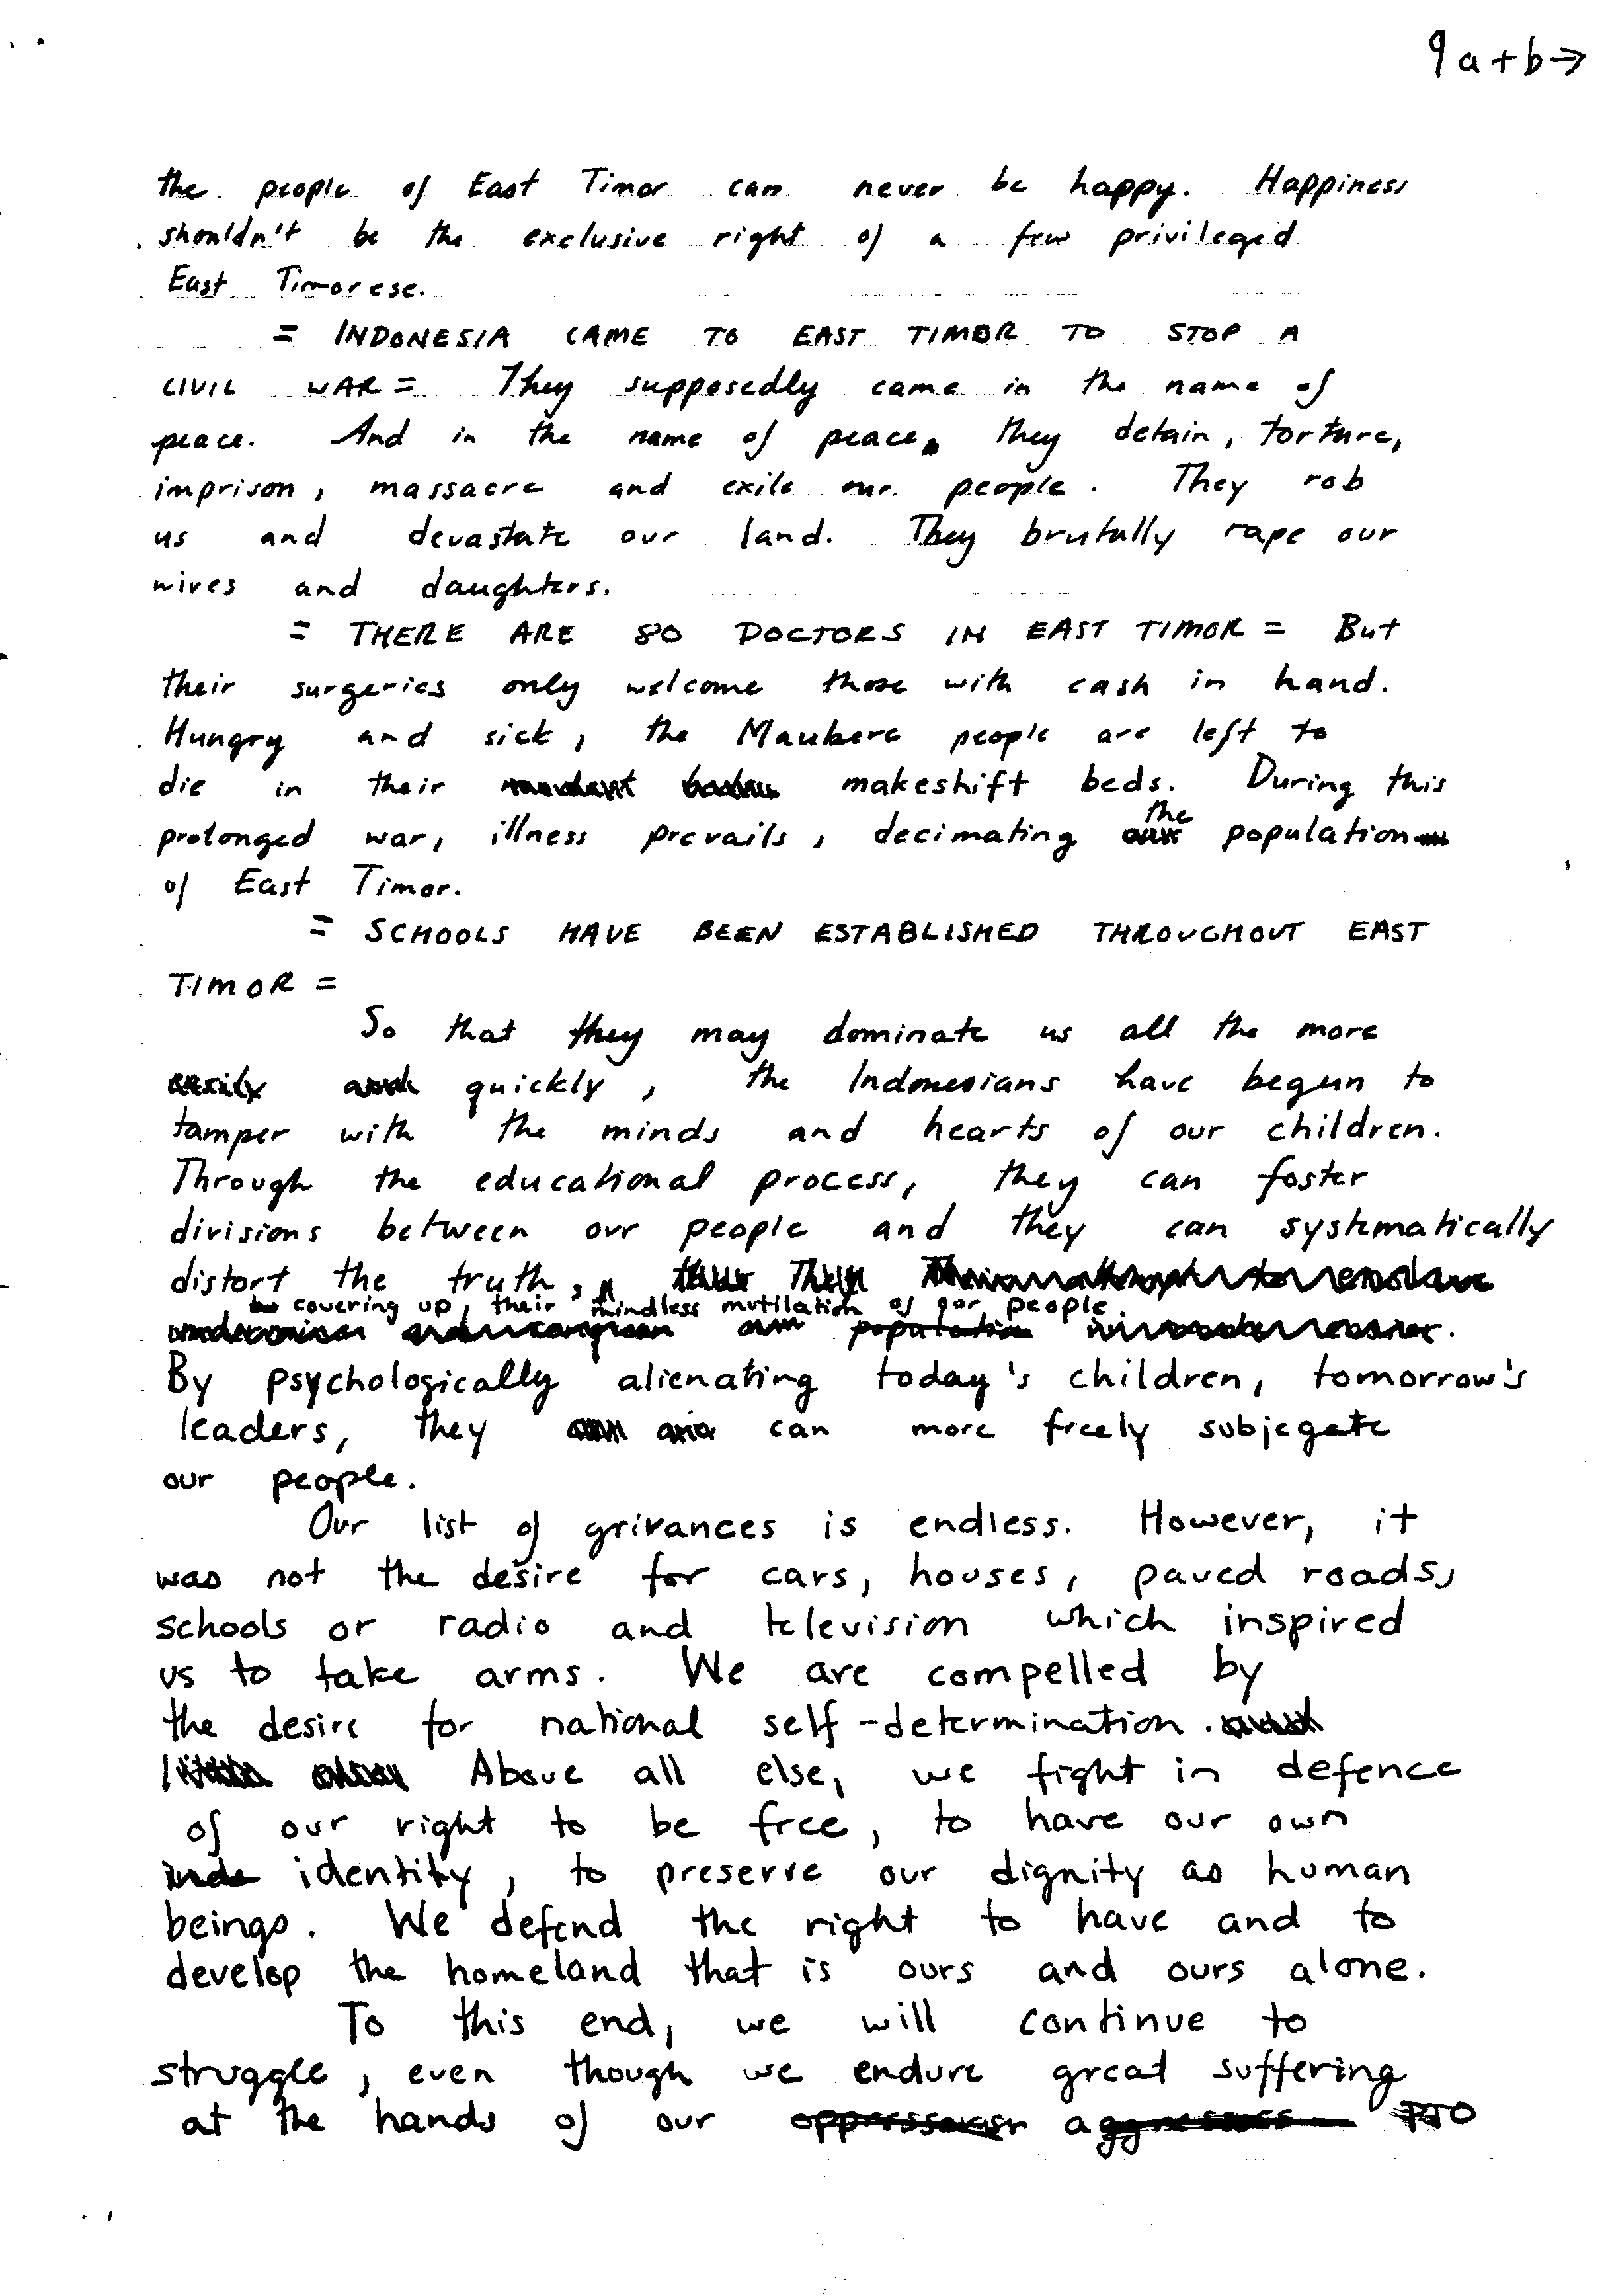 9 a + b →
the people of East Timor can never be happy. Happiness
shouldn't be the exclusive right of a few privileged
East Timorese.
= INDONESIA CAME TO EAST TIMOR TO STOP A
CIVIL WAR = They supposedly came in the name of
peace. And in the name of peace, they detain, torture,
imprison, massacre and exile our people. They rob
us and devastate our land. They brutully rape our
wives and daughters.
= THERE ARE 80 DOCTORS IN EAST TIMOR = But
their surgeries only welcome those with cash in hand.
Hungry and sick, the Maubere people are left to
die in their makeshift beds. During this
the
prolonged war, illness prevails, decimating our population
of East Timor.
= SCHOOLS HAVE BEEN ESTABLISHED THROUGHOUT EAST
TIMOR =
So that they may dominate us all the more
easily and quickly, the Indonesians have begun to
tamper with the minds and hearts of our children.
Through the educational process, they can foster
divisions between our people and they can systematically
distort the truth,
covering up, their mindless mutilation of our people.
population
By psychologically alienating today's children, tomorrow's
leaders, they can more freely subjegate
our people.
Our list of grivances is endless. However, it
was not the desire for cars, houses, paved roads,
schools or radio and television which inspired
us to take arms. We are compelled by
the desire for national self-determination.
Above all else, we fight in defence
of our right to be free, to have our own
inde identity, to preserve our dignity as human
beings. We defend the right to have and to
develop the homeland that is ours and ours alone.
To this end, we will continue to
struggle, even though we endure great suffering
at the hands of our aggressors PTO